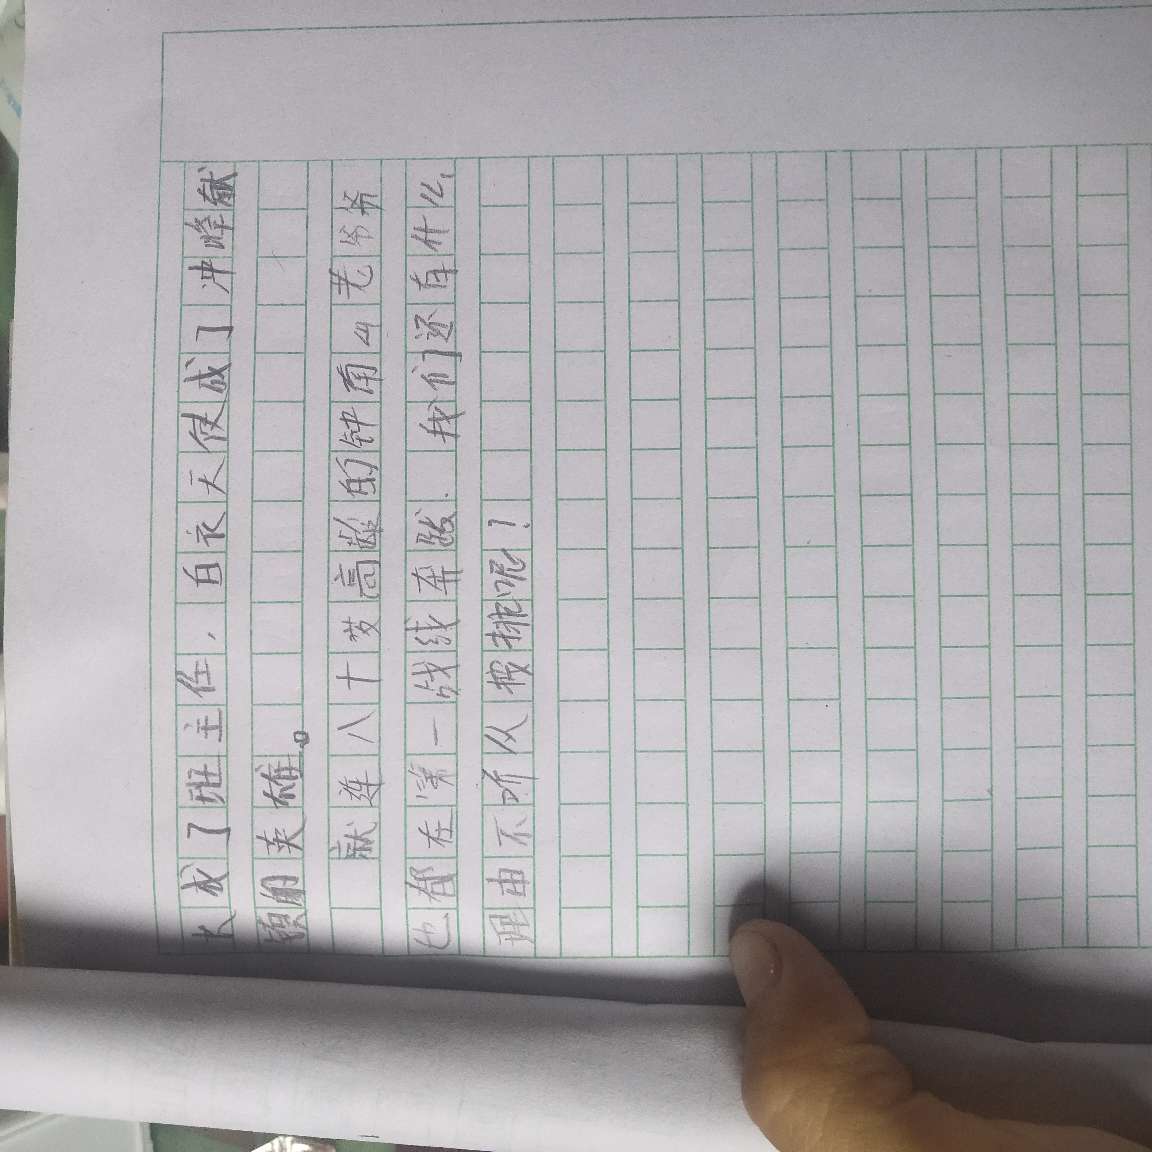 长成了班主任，白衣天使成了冲峰献
镇的英雄。
献连八十岁高龄的钟南山老爷爷
也都在第一战线奔跋.我们还有什么
理由不听从按排呢？